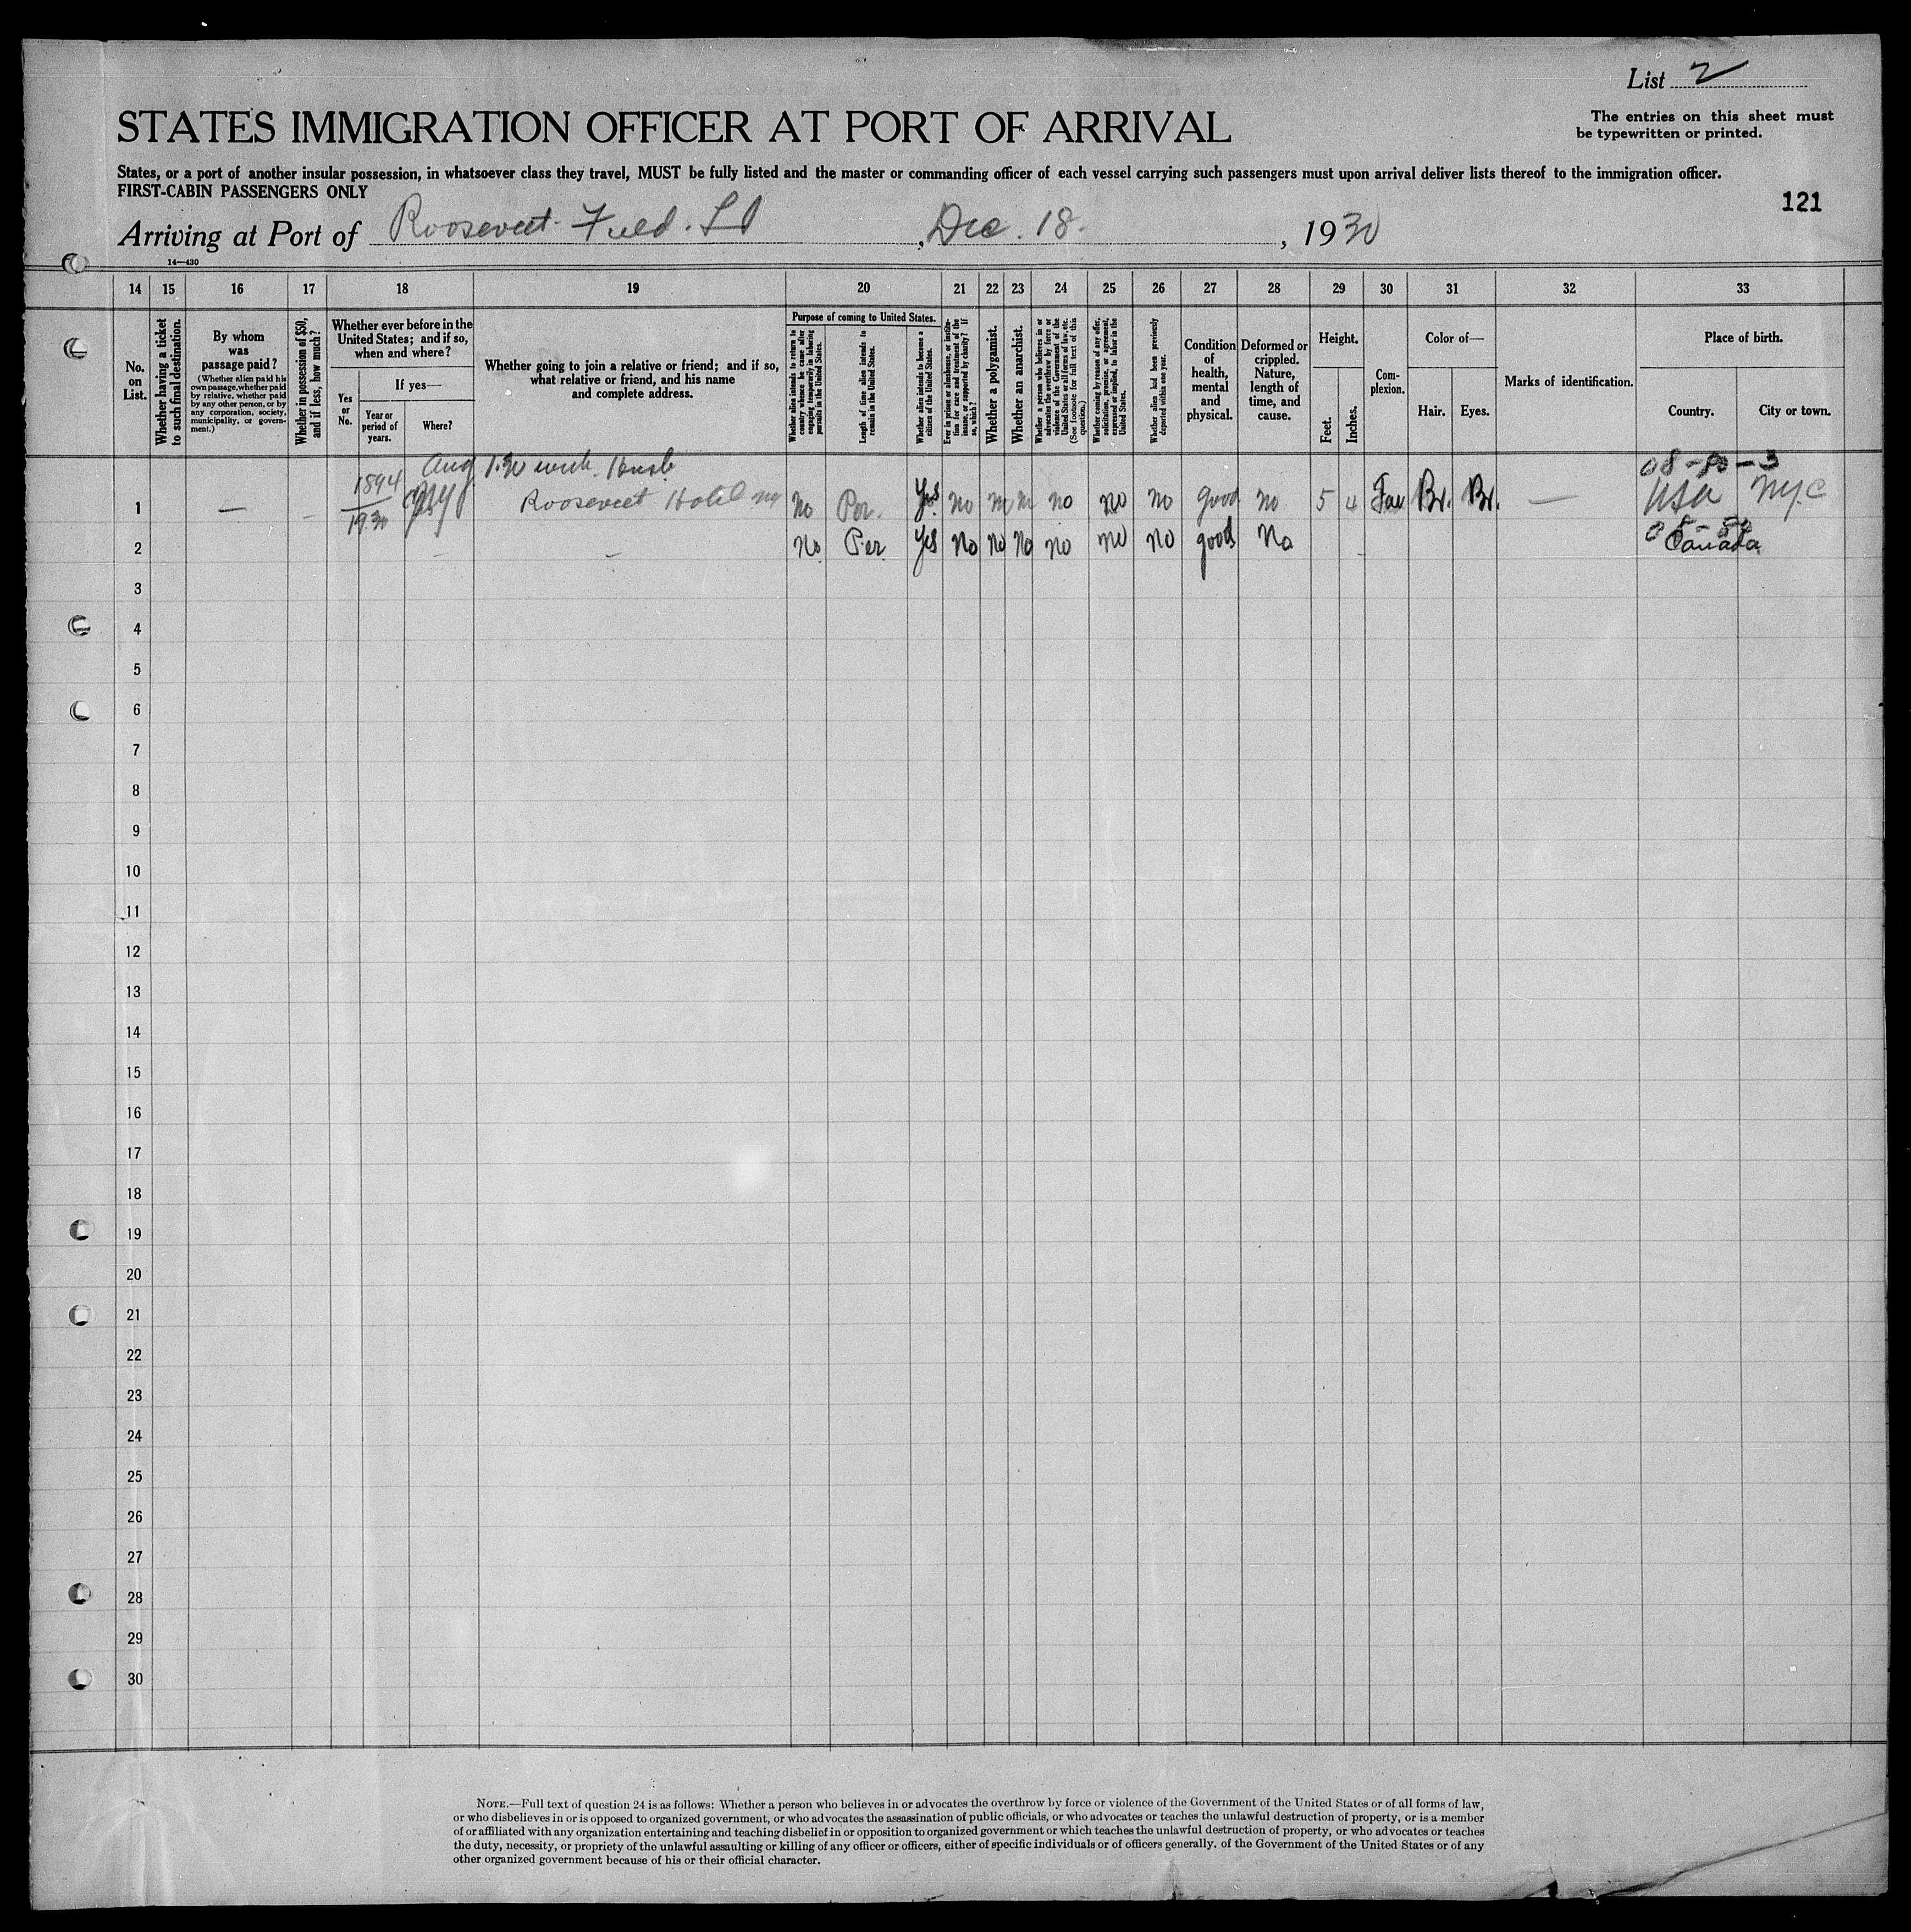 List 2
STATES IMMIGRATION OFFICER AT PORT OF ARRIVAL
The entries on this sheet must
be typewritten or printed.
States, or a port of another insular possession, in whatsoever class they travel, MUST be fully listed and the master or commanding officer of each vessel carrying such passengers must upon arrival deliver lists thereof to the immigration officer.
FIRST-CABIN PASSENGERS ONLY
121
Arriving at Port of Roosevelt Field. L I, Dec. 18, 1930
14—430
14 15 16 17 18 19 20 21 22 23 24 25 26 27 28 29 30 31 32 33
No.
on
List.
Whether having a ticket
to such final destination.
By whom
was
passage paid?
(Whether alien paid his
own passage, whether paid
by relative, whether paid
by any other person, or by
any corporation, society,
municipality, or govern-
ment.)
Whether in possession of $50,
and if less, how much?
Whether ever before in the
United States; and if so,
when and where?
Yes
or
No.
If yes—
Year or
period of
years.
Where?
Whether going to join a relative or friend; and if so,
what relative or friend, and his name
and complete address.
Purpose of coming to United States.
Whether alien intends to return to
country whence he came after
engaging temporarily in laboring
pursuits in the United States.
Length of time alien intends to
remain in the United States.
Whether alien intends to become a
citizen of the United States.
Ever in prison or almshouse, or institu-
tion for care and treatment of the
insane, or supported by charity? If
so, which?
Whether a polygamist.
Whether an anarchist.
Whether a person who believes in or
advocates the overthrow by force or
violence of the Government of the
United States or all forms of law, etc.
(See footnote for full text of this
question.)
Whether coming by reason of any offer,
solicitation, promise, or agreement,
expressed or implied, to labor in the
United States.
Whether alien had been previously
deported within one year.
Condition
of
health,
mental
and
physical.
Deformed or
crippled.
Nature,
length of
time, and
cause.
Height.
Feet.
Inches.
Com-
plexion.
Color of—
Hair.
Eyes.
Marks of identification.
Place of birth.
Country.
City or town.
Aug 1.30 with Husb 08-80-3
1 — – 1894 1930 NY Roosevelt Hotel NY No Per. Yes No no no no no no good no 5 4 Fair Br. Br. — USA NY.C
2 – – No Per Yes No No No no no no good No Canada
3
4
5
6
7
8
9
10
11
12
13
14
15
16
17
18
19
20
21
22
23
24
25
26
27
28
29
30
NOTE.—Full text of question 24 is as follows: Whether a person who believes in or advocates the overthrow by force or violence of the Government of the United States or of all forms of law,
or who disbelieves in or is opposed to organized government, or who advocates the assassination of public officials, or who advocates or teaches the unlawful destruction of property, or is a member
of or affiliated with any organization entertaining and teaching disbelief in or opposition to organized government or which teaches the unlawful destruction of property, or who advocates or teaches
the duty, necessity, or propriety of the unlawful assaulting or killing of any officer or officers, either of specific individuals or of officers generally. of the Government of the United States or of any
other organized government because of his or their official character.